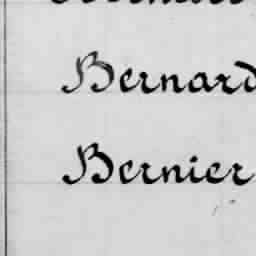 Bernard
Bernier